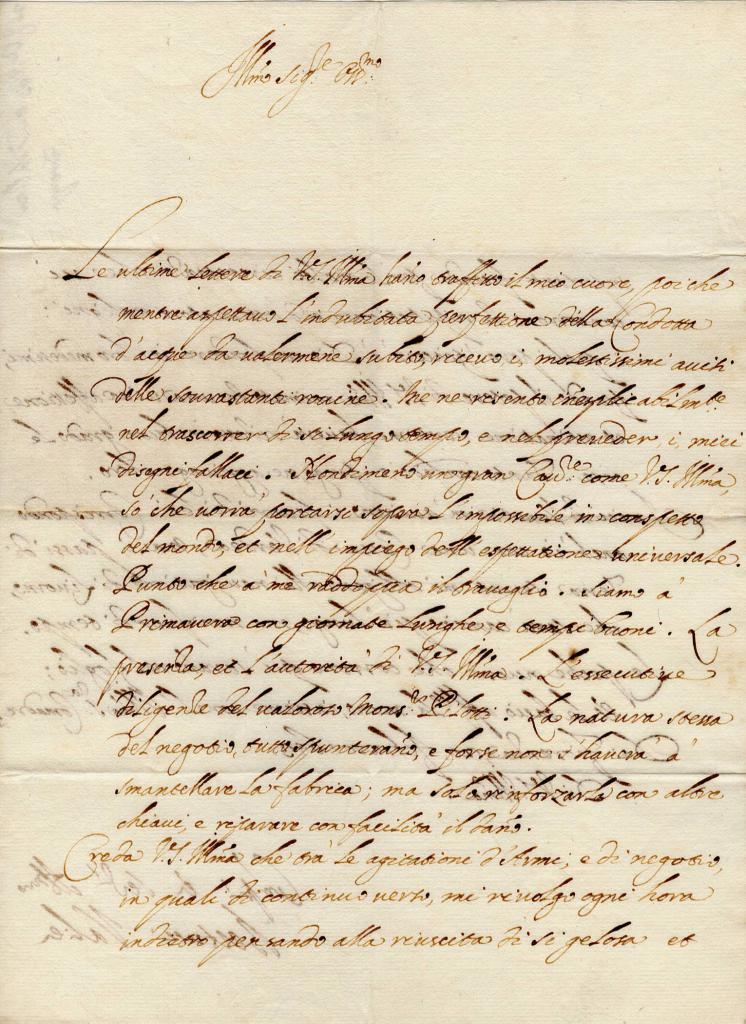 Illmo Sigre
Le ultime lettere di V.S. Illma hano traffitto il mio cuore, poi che
mentre aspettavo l'indubitata perfettione della Condotta
d'acque da valermene subito, ricevo i molestissimi avisi
delle sovrastanti rovine. Me ne risento inesplicabilmte
nel trascorrer di si lungo tempo, e nel preveder, i, miei
disegni fallaci. Nondimeno un gran Cavre come V.S. Illma,
só che vorrà portarsi sopra l'impossibile in conspetto
del mondo, et nell'impiego dell'espettatione universale.
Punto che a' me raddoppia il travaglio. Siamo a'
Primavera con giornate lunghe e tempi buoni. La
presenza, et l'autorità di V.S. Illma. L'essecutive
diligenze del valoroso Monsr Pilotti. La natura stessa
del negotio, tutto spunterano, e forse non s'haverà a'
smantellare la fabrica; ma solo rinforzarla con altre
chiavi, e riparare con facilità il dano.
Creda V.S. Illma che trà le agitationi d'Armi, e di negotio,
in quali di continuo verso, mi rivolgo ogni hora
indietro pensando alla riuscita di si gelosa et